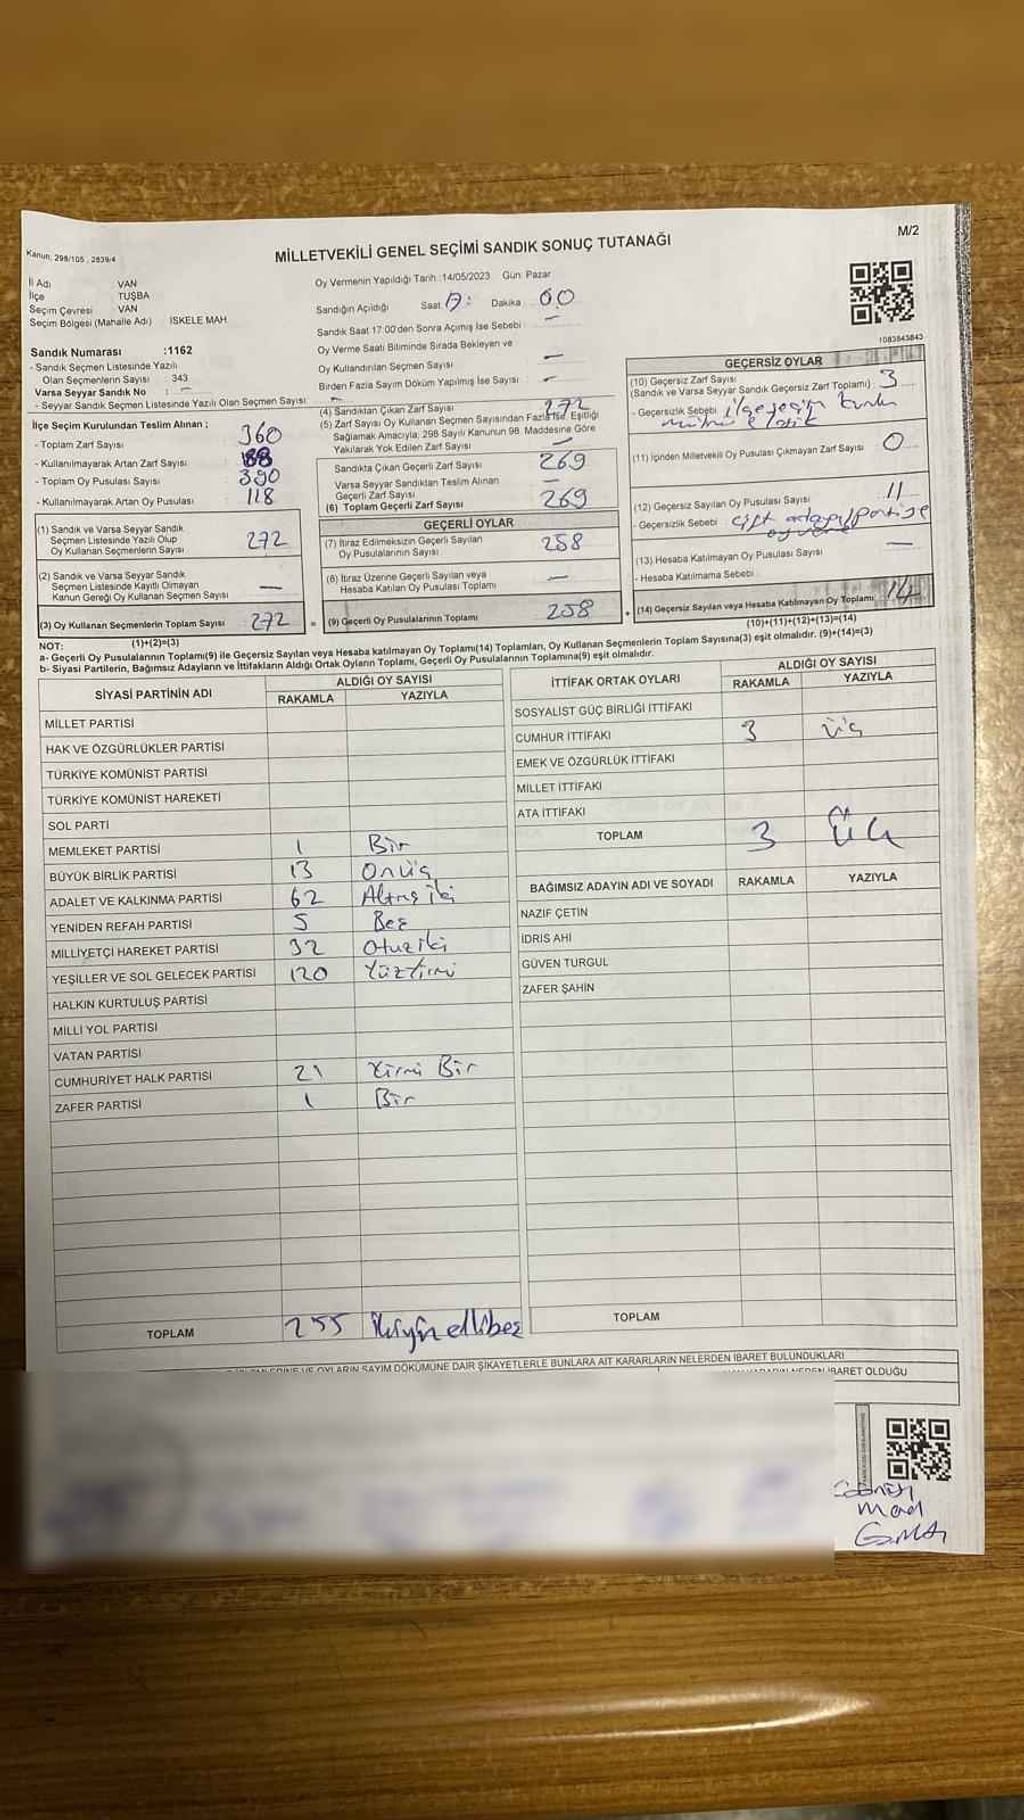 M/2
Kanun: 298/105 , 2839/4
MİLLETVEKİLİ GENEL SEÇİMİ SANDIK SONUÇ TUTANAĞI
İl Adı : VAN
İlçe : TUŞBA
Seçim Çevresi : VAN
Seçim Bölgesi (Mahalle Adı) : İSKELE MAH.
Oy Vermenin Yapıldığı Tarih :14/05/2023 Gün: Pazar
Sandığın Açıldığı Saat: 17: Dakika: 00
Sandık Saat 17:00'den Sonra Açılmış İse Sebebi : —
Oy Verme Saati Bitiminde Sırada Bekleyen ve
Oy Kullandırılan Seçmen Sayısı : —
Birden Fazla Sayım Döküm Yapılmış İse Sayısı : —
1083843843
Sandık Numarası :1162
- Sandık Seçmen Listesinde Yazılı
Olan Seçmenlerin Sayısı : 343
Varsa Seyyar Sandık No : —
- Seyyar Sandık Seçmen Listesinde Yazılı Olan Seçmen Sayısı: —
İlçe Seçim Kurulundan Teslim Alınan ;
- Toplam Zarf Sayısı 360
- Kullanılmayarak Artan Zarf Sayısı 88
- Toplam Oy Pusulası Sayısı 390
- Kullanılmayarak Artan Oy Pusulası 118
(1) Sandık ve Varsa Seyyar Sandık
Seçmen Listesinde Yazılı Olup
Oy Kullanan Seçmenlerin Sayısı 272
(2) Sandık ve Varsa Seyyar Sandık
Seçmen Listesinde Kayıtlı Olmayan
Kanun Gereği Oy Kullanan Seçmen Sayısı —
(3) Oy Kullanan Seçmenlerin Toplam Sayısı 272
(1)+(2)=(3)
(4) Sandıktan Çıkan Zarf Sayısı 272
(5) Zarf Sayısı Oy Kullanan Seçmen Sayısından Fazla İse, Eşitliği
Sağlamak Amacıyla; 298 Sayılı Kanunun 98. Maddesine Göre
Yakılarak Yok Edilen Zarf Sayısı —
Sandıkta Çıkan Geçerli Zarf Sayısı 269
Varsa Seyyar Sandıktan Teslim Alınan
Geçerli Zarf Sayısı —
(6) Toplam Geçerli Zarf Sayısı 269
GEÇERLİ OYLAR
(7) İtiraz Edilmeksizin Geçerli Sayılan
Oy Pusulalarının Sayısı 258
(8) İtiraz Üzerine Geçerli Sayılan veya
Hesaba Katılan Oy Pusulası Toplamı —
= (9) Geçerli Oy Pusulalarının Toplamı 258
GEÇERSİZ OYLAR
(10) Geçersiz Zarf Sayısı
(Sandık ve Varsa Seyyar Sandık Geçersiz Zarf Toplamı) : 3
- Geçersizlik Sebebi ilçe seçim kurulu
mührü eksik
(11) İçinden Milletvekili Oy Pusulası Çıkmayan Zarf Sayısı 0
(12) Geçersiz Sayılan Oy Pusulası Sayısı 11
- Geçersizlik Sebebi çift adaya/partiye
(13) Hesaba Katılmayan Oy Pusulası Sayısı —
- Hesaba Katılmama Sebebi
+ (14) Geçersiz Sayılan veya Hesaba Katılmayan Oy Toplamı 14
(10)+(11)+(12)+(13)=(14)
NOT:
a- Geçerli Oy Pusulalarının Toplamı(9) ile Geçersiz Sayılan veya Hesaba katılmayan Oy Toplamı(14) Toplamları, Oy Kullanan Seçmenlerin Toplam Sayısına(3) eşit olmalıdır. (9)+(14)=(3)
b- Siyasi Partilerin, Bağımsız Adayların ve İttifakların Aldığı Ortak Oyların Toplamı, Geçerli Oy Pusulalarının Toplamına(9) eşit olmalıdır.
SİYASİ PARTİNİN ADI ALDIĞI OY SAYISI
RAKAMLA YAZIYLA
MİLLET PARTİSİ
HAK VE ÖZGÜRLÜKLER PARTİSİ
TÜRKİYE KOMÜNİST PARTİSİ
TÜRKİYE KOMÜNİST HAREKETİ
SOL PARTİ
MEMLEKET PARTİSİ 1 Bir
BÜYÜK BİRLİK PARTİSİ 13 Onüç
ADALET VE KALKINMA PARTİSİ 62 Altmış iki
YENİDEN REFAH PARTİSİ 5 Beş
MİLLİYETÇİ HAREKET PARTİSİ 32 Otuziki
YEŞİLLER VE SOL GELECEK PARTİSİ 120 Yüzyirmi
HALKIN KURTULUŞ PARTİSİ
MİLLİ YOL PARTİSİ
VATAN PARTİSİ
CUMHURİYET HALK PARTİSİ 21 Yirmi Bir
ZAFER PARTİSİ 1 Bir
TOPLAM 255 ikiyüz ellibeş
İTTİFAK ORTAK OYLARI ALDIĞI OY SAYISI
RAKAMLA YAZIYLA
SOSYALİST GÜÇ BİRLİĞİ İTTİFAKI
CUMHUR İTTİFAKI 3 üç
EMEK VE ÖZGÜRLÜK İTTİFAKI
MİLLET İTTİFAKI
ATA İTTİFAKI
TOPLAM 3 Üç
BAĞIMSIZ ADAYIN ADI VE SOYADI RAKAMLA YAZIYLA
NAZİF ÇETİN
İDRİS AHİ
GÜVEN TURGUL
ZAFER ŞAHİN
TOPLAM
OYLARIN SAYIM DÖKÜMÜNE DAİR ŞİKAYETLERLE BUNLARA AİT KARARLARIN NELERDEN İBARET BULUNDUKLARI
NEDEN İBARET OLDUĞU